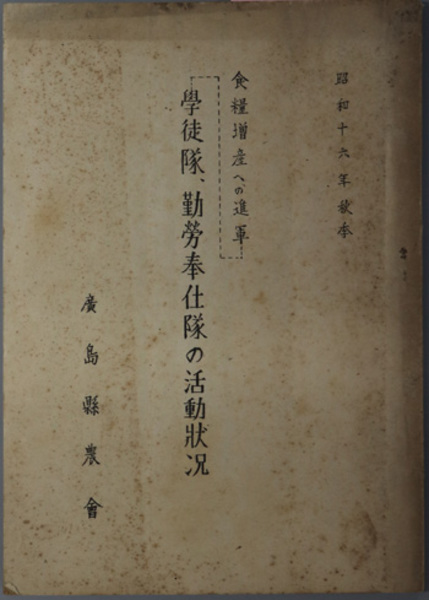 昭和十六年秋季
食糧増産への進軍
學徒隊、勤勞奉仕隊の活動狀况
廣島縣農會